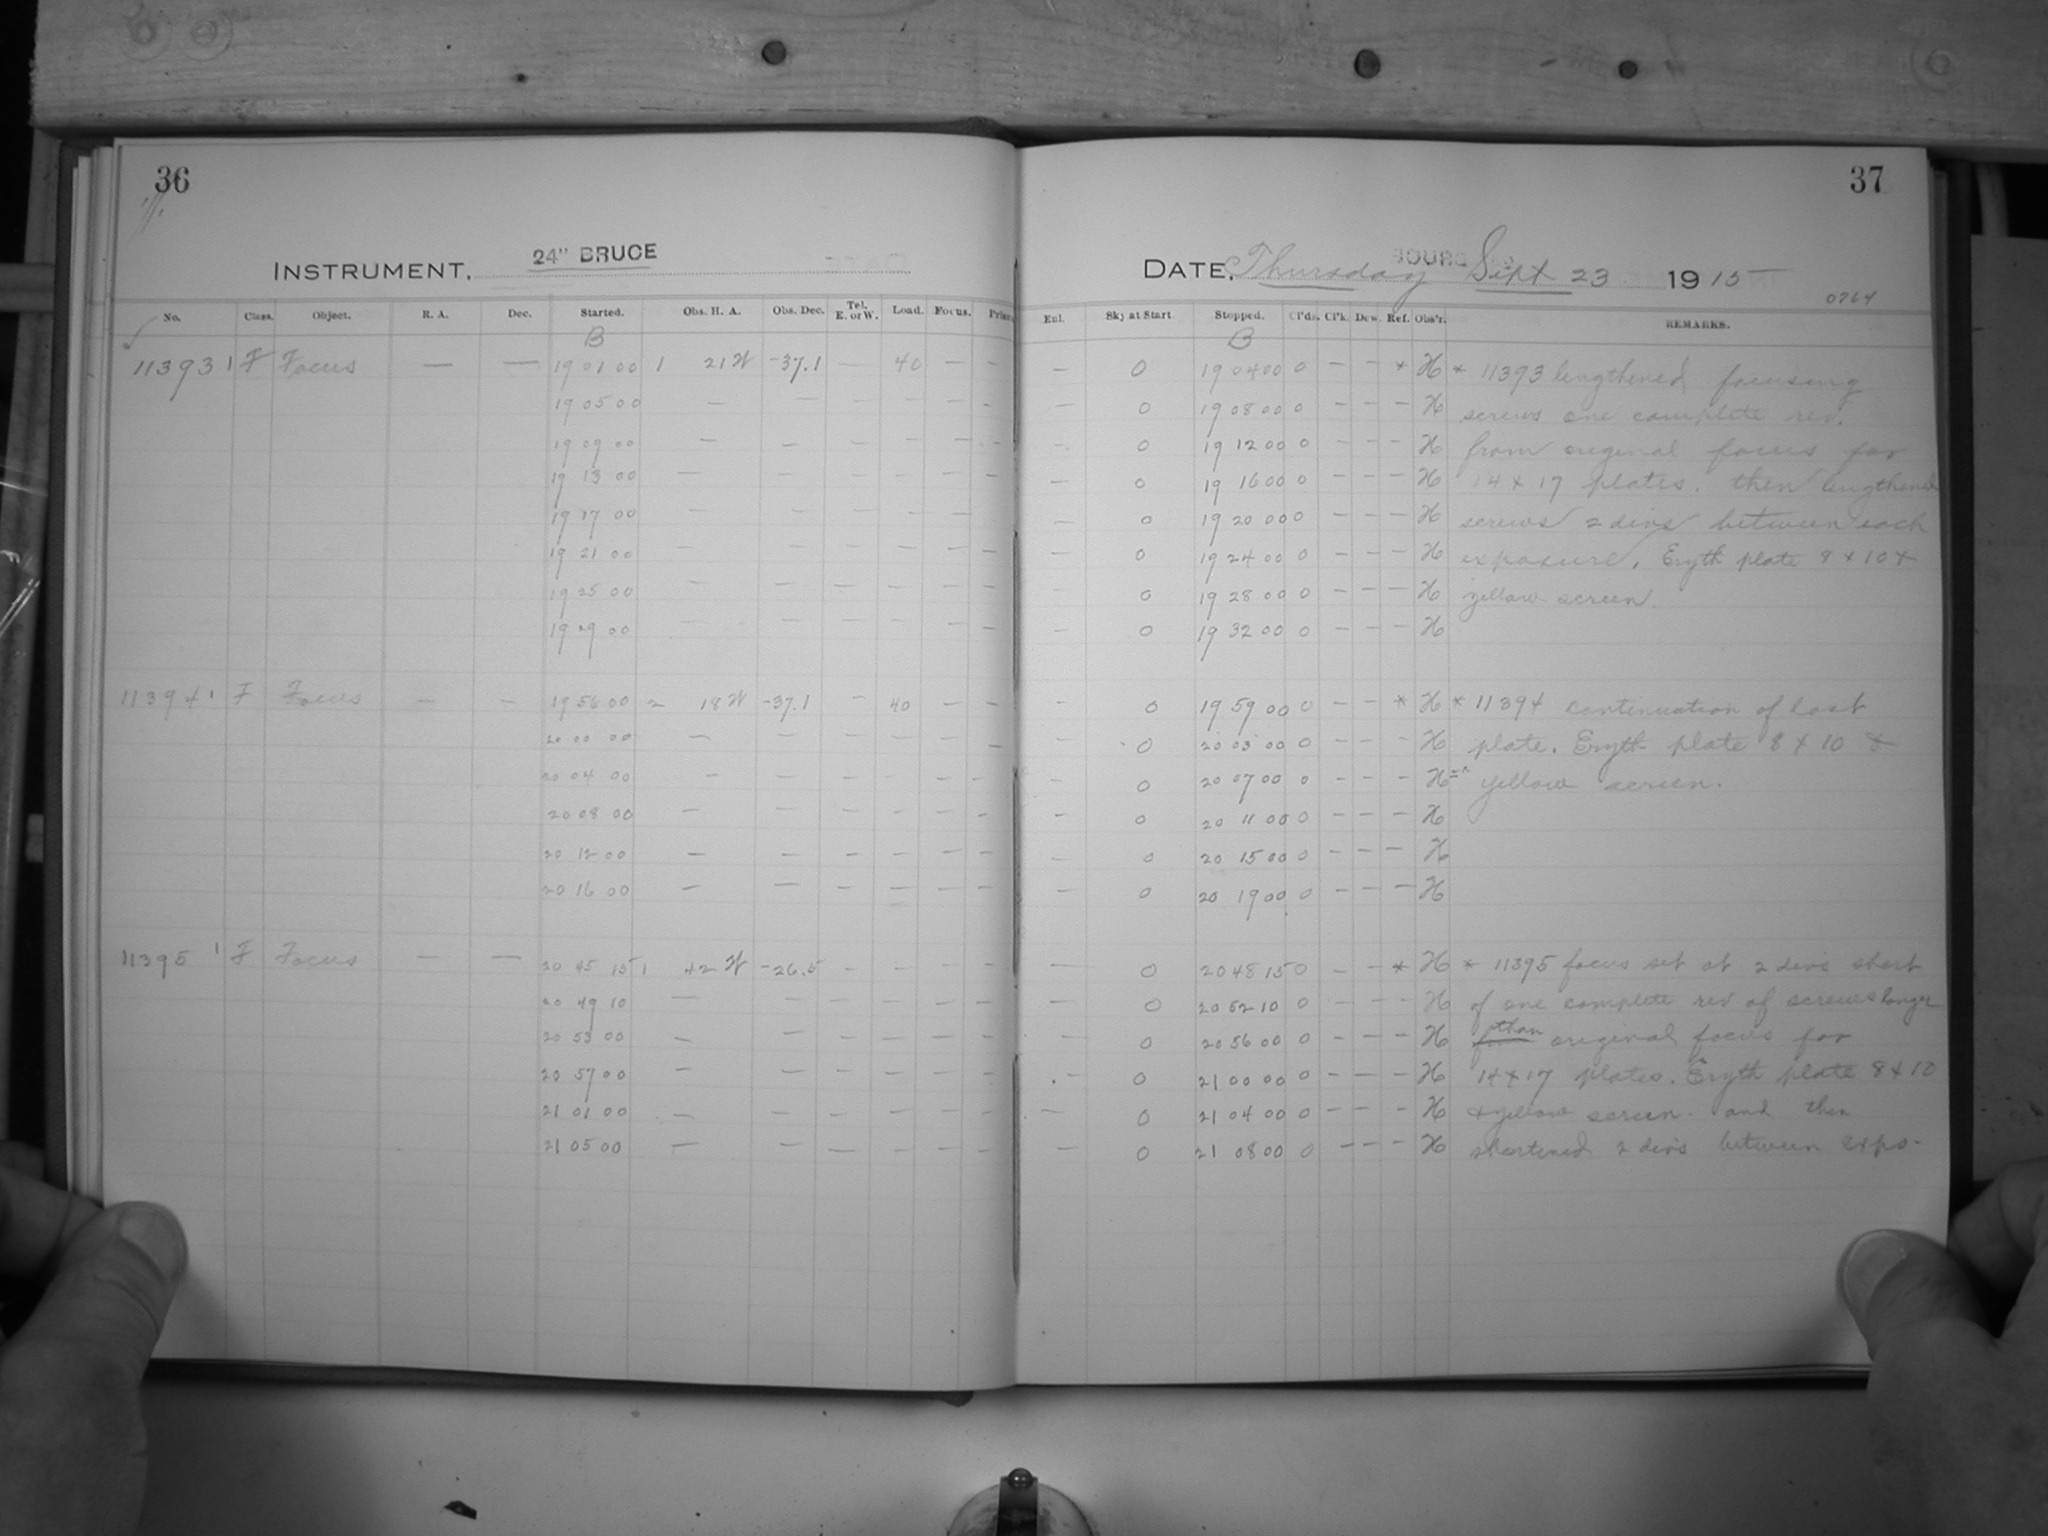 36
INSTRUMENT, 24" BRUCE
No. Class. Object. R. A. Dec. Started. Obs. H. A. Obs. Dec. Tel. E. or W. Load. Focus.
B
11393 1 F Focus — — 19 01 00 1 21 W -37.1 — 40 — —
19 05 00 — — — — — -
19 09 00 — — — — — -
19 13 00 — — — — — —
19 17 00 — — — — —
19 21 00 — — — — — —
19 25 00 — — — — — —
19 29 00 — — — — — —
11394 1 F Focus — — 19 56 00 2 18 W -37.1 — 40 — —
20 00 00 — — — — — —
20 04 00 — — — — — -
20 08 00 — — — — — -
20 12 00 — — — — — —
20 16 00 — — — — — —
11395 1 F Focus — — 20 45 15 1 42 W -26.5 - — — —
20 49 10 — — — — — —
20 53 00 — — — — — —
20 57 00 — — — — — —
21 01 00 — — — — — —
21 05 00 — — — — — —
37
DATE, Thursday Sept 23 1915
0764
Enl. Sky at Start. Stopped. Cl'ds. Cl'k. Dew. Ref. Obs'r. REMARKS.
B
— 0 19 04 00 0 - - * H * 11393 lengthened focusing
— 0 19 08 00 0 - - - H screws one complete rev.
- 0 19 12 00 0 - - - H from original focus for
— 0 19 16 00 0 - - - H 14 x 17 plates. then lengthened
— 0 19 20 00 0 - - - H screws 2 divs between each
— 0 19 24 00 0 - - - H exposure. Eryth plate 8 x 10 +
— 0 19 28 00 0 - - - H yellow screen.
— 0 19 32 00 0 - - - H
— 0 19 59 00 0 - - * H * 11394 continuation of last
— 0 20 03 00 0 - - - H plate. Eryth plate 8 x 10 &
- 0 20 07 00 0 - - - H yellow screen.
— 0 20 11 00 0 - - - H
— 0 20 15 00 0 - - - H
— 0 20 19 00 0 - - - H
— 0 20 48 15 0 - - * H * 11395 focus set at 2 divs short
— 0 20 52 10 0 - - - H of one complete rev of screws longer
- 0 20 56 00 0 - - - H than original focus for
- 0 21 00 00 0 - - - H 14 x 17 plates. Eryth plate 8 x 10
— 0 21 04 00 0 - - - H + yellow screen. and then
— 0 21 08 00 0 - - - H shortened 2 divs between expo-